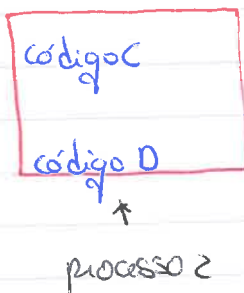 código C
código D
processo 2